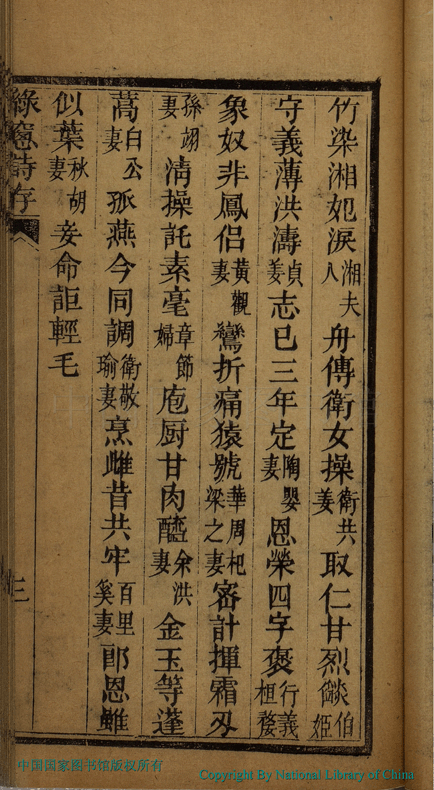 竹染湘妃淚湘夫人舟傳衛女操衛共姜取仁甘烈燄伯姬
守義薄洪濤貞姜志已三年定陶嬰妻恩榮四字褒行義桓嫠
象奴非鳳侶黃觀妻鸞折痛猿號華周杞梁之妻審計揮霜刃
孫翊妻淸操託素毫章節婦庖厨甘肉醢余洪妻金玉等蓬
蒿白公妻孤燕今同調衛敬瑜妻烹雌昔共牢百里奚妻郎恩雖
似葉秋胡妻妾命詎輕毛
綠窻詩存
三
中国国家图书馆版权所有
Copyright By National Library of China